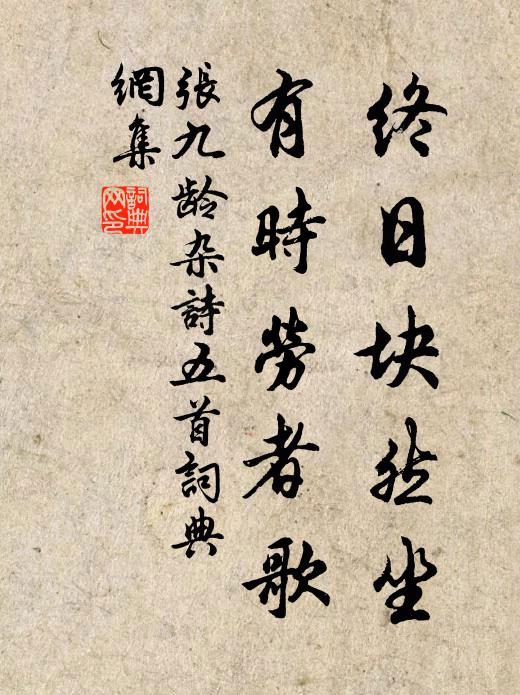 终日块然坐
有時勞者歌
張九龄杂詩五首詞典
網集
詞典网印